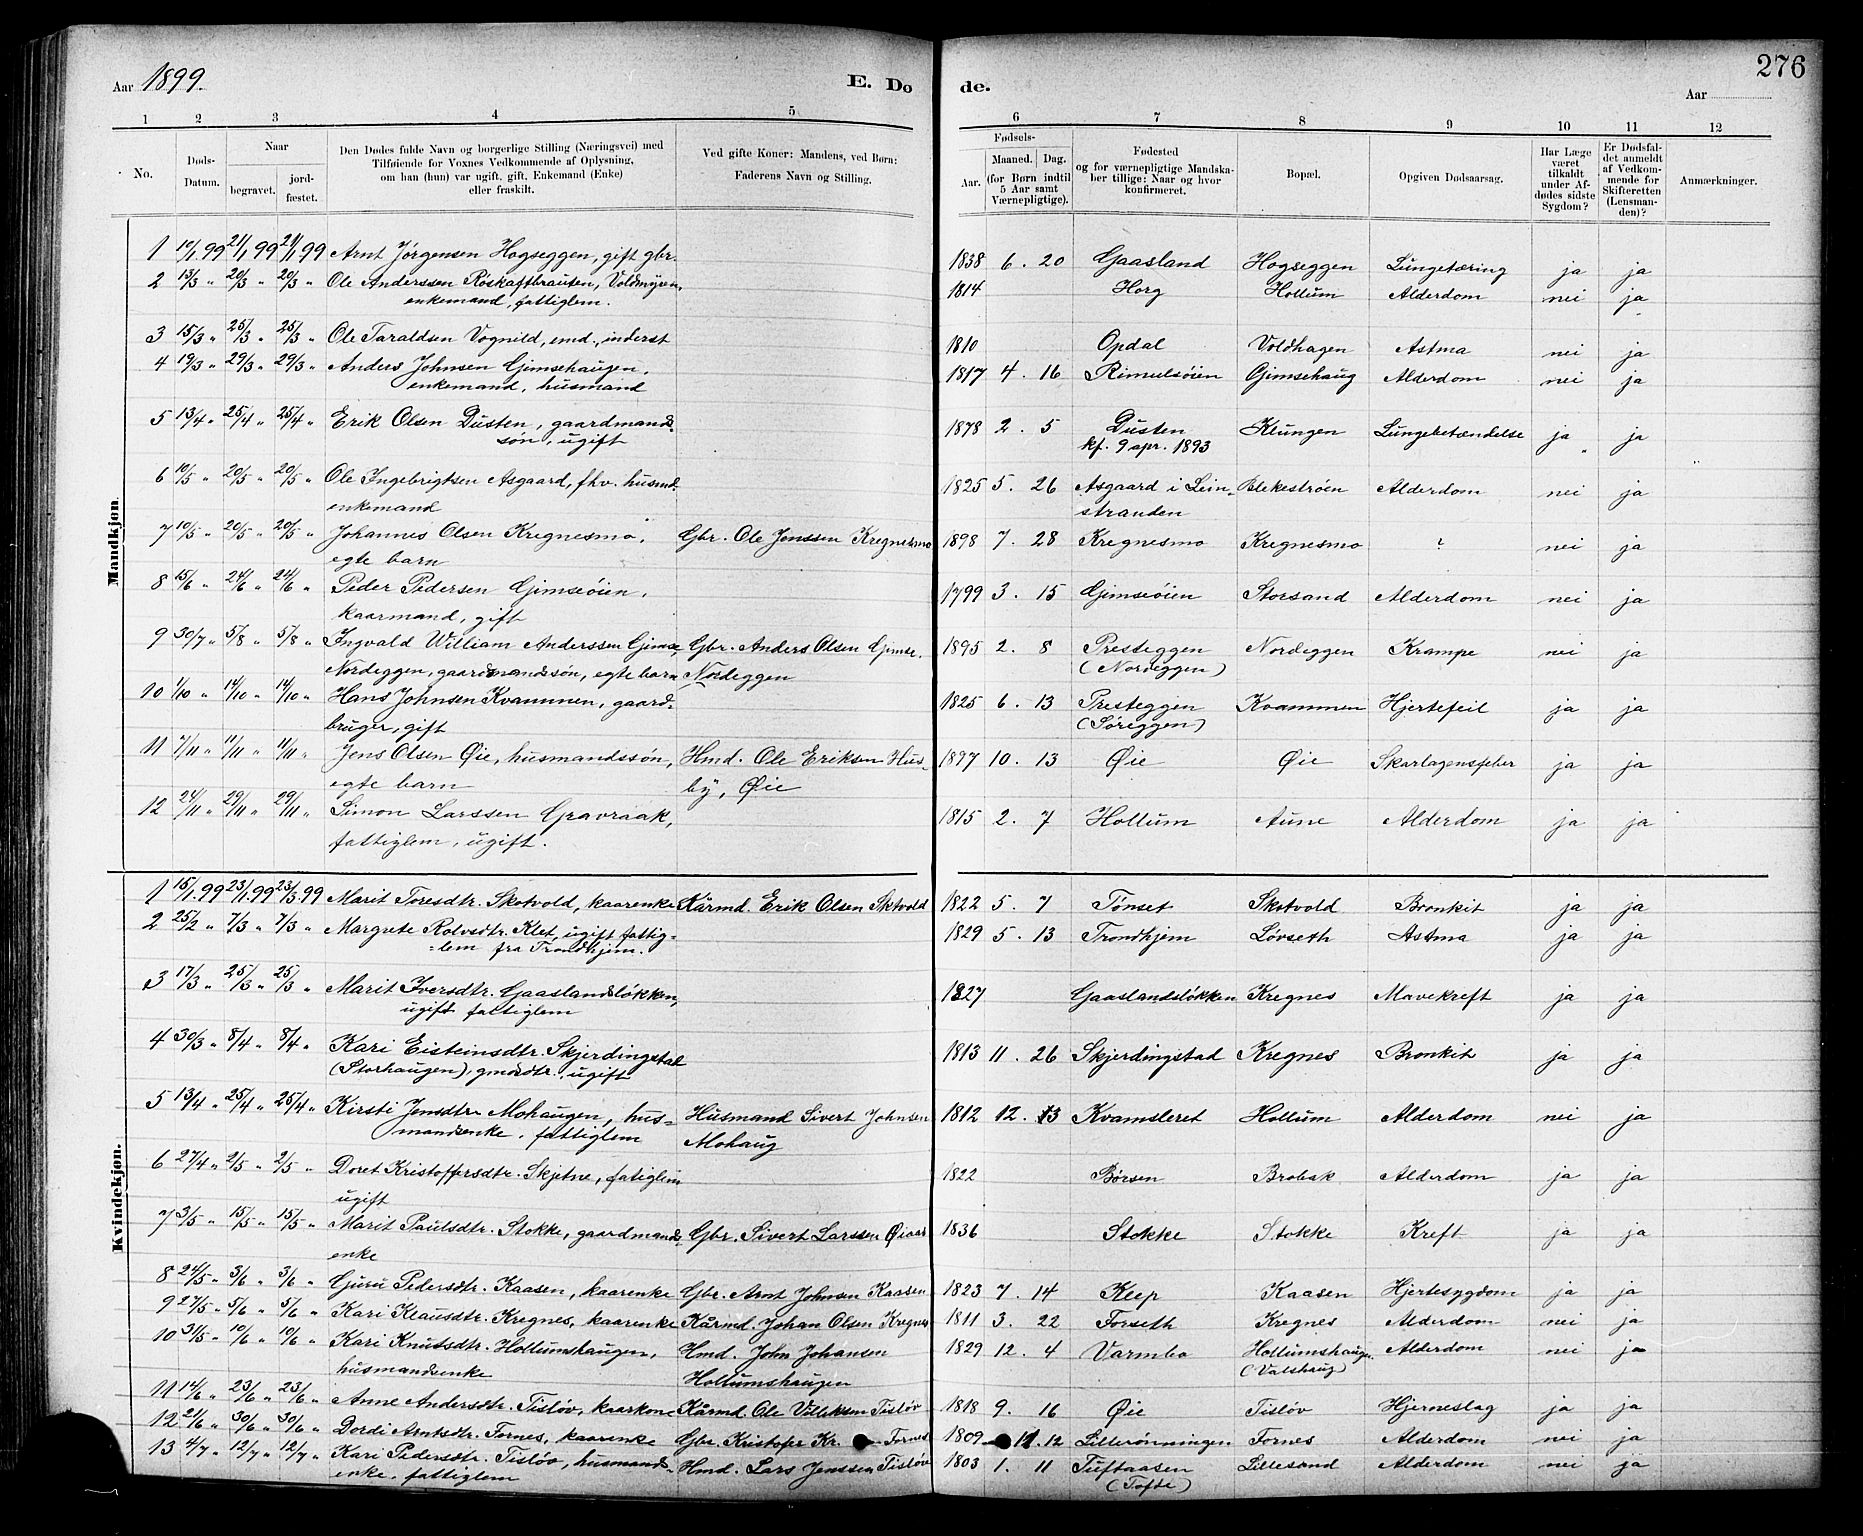 276
Aar 1899.
E. Do
de.
Aar
1 2 3 4 5 6 7 8 9 10 11 12
No.
Døds-Datum.
Naar
begravet.
jordfæstet.
Den Dødes fulde Navn og borgerlige Stilling (Næringsvei) med
Tilføiende for Voxnes Vedkommende af Oplysning,
om han (hun) var ugift, gift, Enkemand (Enke)
eller fraskilt.
Ved gifte Koner: Mandens, ved Børn:
Faderens Navn og Stilling.
Fødsels-
Aar.
Maaned. Dag.
(for Børn indtil
5 Aar samt
Værnepligtige).
Fødested
og for værnepligtige Mandska-
ber tillige: Naar og hvor
konfirmeret.
Bopæl.
Opgiven Dødsaarsag.
Har Læge
været
tilkaldt
under Af-
dødes sidste
Sygdom?
Er Dødsfal-
det anmeldt
af Vedkom-
mende for
Skifteretten
(Lensman-
den)?
Anmærkninger.
Mandkjøn
1 10/1 99 21/1 99 21/1 99 Arnt Jørgensen Hogseggen, gift gbr. 1838 6. 20 Gaasland Hogseggen Lungetæring ja ja
2 13/3 " 20/3 " 20/3 " Ole Anderssen Roskaftbrauten, Voldmyren, 1814 Horg Hollum Alderdom nei ja
enkemand, fattiglem.
3 15/3 " 25/3 " 25/3 " Ole Taraldsen Vognild, emd., inderst 1810 Opdal Voldhagen Astma nei ja
4 19/3 " 29/3 " 29/3 " Anders Johnsen Gimsehaugen, 1817 4. 16 Rimulsøien Gimsehaug Alderdom nei ja
enkemand, husmand
5 13/4 " 25/4 " 25/4 " Erik Olsen Dusten, gaardmand- 1878 2. 5 Dusten Klungen Lungebetændelse ja ja
søn, ugift kf. 9 apr. 1893
6 10/5 " 20/5 " 20/5 " Ole Ingebrigtsen Asgaard, fhv. husmd. 1825 5. 26 Asgaard i Lein- Blekestrøen Alderdom nei ja
enkemand stranden
7 10/5 " 20/5 " 20/5 " Johannes Olsen Kregnesmo, Gbr. Ole Jenssen Kregnesmo 1898 7. 28 Kregnesmo Kregnesmo ? nei ja
egte barn
8 15/6 " 24/6 " 24/6 " Peder Pedersen Gimseøien, 1799 3. 15 Gimseøien Storsand Alderdom nei ja
kaarmand, gift
9 30/7 " 5/8 " 5/8 " Ingvald William Anderssen Gimse, Gbr. Anders Olsen Gimse, 1895 2. 8 Presteggen Nordeggen Krampe nei ja
Nordeggen, gaardmandssøn, egte barn Nordeggen (Nordeggen)
10 1/10 " 14/10 " 14/10 " Hans Johnsen Kvammen, gaard- 1825 6. 13 Presteggen Kvammen Hjertefeil ja ja
bruger, gift (Søreggen)
11 7/11 " 11/11 " 11/11 " Jens Olsen Øie, husmandssøn, Hmd. Ole Eriksen Hus- 1897 10. 13 Øie Øie Skarlagensfeber ja ja
egte barn by, Øie
12 24/11 " 29/11 " 29/11 " Simon Larssen Gravraak, 1815 2. 7 Hollum Aune Alderdom ja ja
fattiglem, ugift.
Kvindekjøn.
1 15/1 99 23/1 99 23/3 99 Marit Toresdtr. Skotvold, kaarenke Kårmd. Erik Olsen Skotvold 1822 5. 7 Tønset Skotvold Bronkit ja ja
2 25/2 " 7/3 " 7/3 " Margrete Rolvsdtr. Klet, ugift fattig- 1829 5. 13 Trondhjem Løvseth Astma ja ja
lem fra Trondhjem.
3 17/3 " 25/3 " 25/3 " Marit Iversdtr. Gaaslandsløkken, 1827 Gaaslandsløkken Kregnes Mavekreft ja ja
ugift fattiglem
4 30/3 " 8/4 " 8/4 " Kari Eisteinsdtr. Skjerdingstad 1813 11. 26 Skjerdingstad Kregnes Bronkit ja ja
(Storhaugen), gmdrdtr., ugift
5 13/4 " 25/4 " 25/4 " Kirsti Jensdtr Mohaugen, hus- Husmand Sivert Johnsen 1812 12. 13 Kvamsleret Hollum Alderdom nei ja
mandsenke, fattiglem Mohaug
6 27/4 " 2/5 " 2/5 " Doret Kristoffersdtr. Skjetne, fatiglem 1822 Børsen Brobak Alderdom ja ja
ugift
7 3/5 " 15/5 " 15/5 " Marit Paulsdtr. Stokke, gaardmands- Gbr. Sivert Larssen Øiaas 1836 Stokke Stokke Kreft ja ja
enke
8 24/5 " 3/6 " 3/6 " Guru Pedersdtr. Kaasen, kaarenke Gbr. Arnt Johnsen Kaasen 1823 7. 14 Klep Kaasen Hjertesygdom ja ja
9 27/5 " 5/6 " 5/6 " Kari Klausdtr. Kregnes, kaarenke Kårmd. Johan Olsen Kregnes 1811 3. 22 Forseth Kregnes Alderdom nei ja
10 31/5 " 10/6 " 10/6 " Kari Knutsdtr. Hollumshaugen, Hmd. John Johansen 1829 12. 4 Varmbo Hollumshaugen Alderdom nei ja
husmandsenke Hollumshaugen (Valshaug)
11 14/6 " 23/6 " 23/6 " Anne Andersdtr. Tisløv, kaarkone Kårmd. Ole Tisløv 1818 9. 16 Øie Tisløv Hjerneslag ja ja
12 21/6 " 30/6 " 30/6 " Dordi Arntsdtr. Fornes, kaarenke Gbr. Kristofer Kr. Fornes 1809 11. 12 Lillerønningen Fornes Alderdom nei ja
13 4/7 " 12/7 " 12/7 " Kari Pedersdtr. Tisløv, husmands- Hmd. Lars Jenssen Tisløv 1803 1. 11 Tuftaasen Lillesand Alderdom nei ja
enke, fattiglem (Tofte)